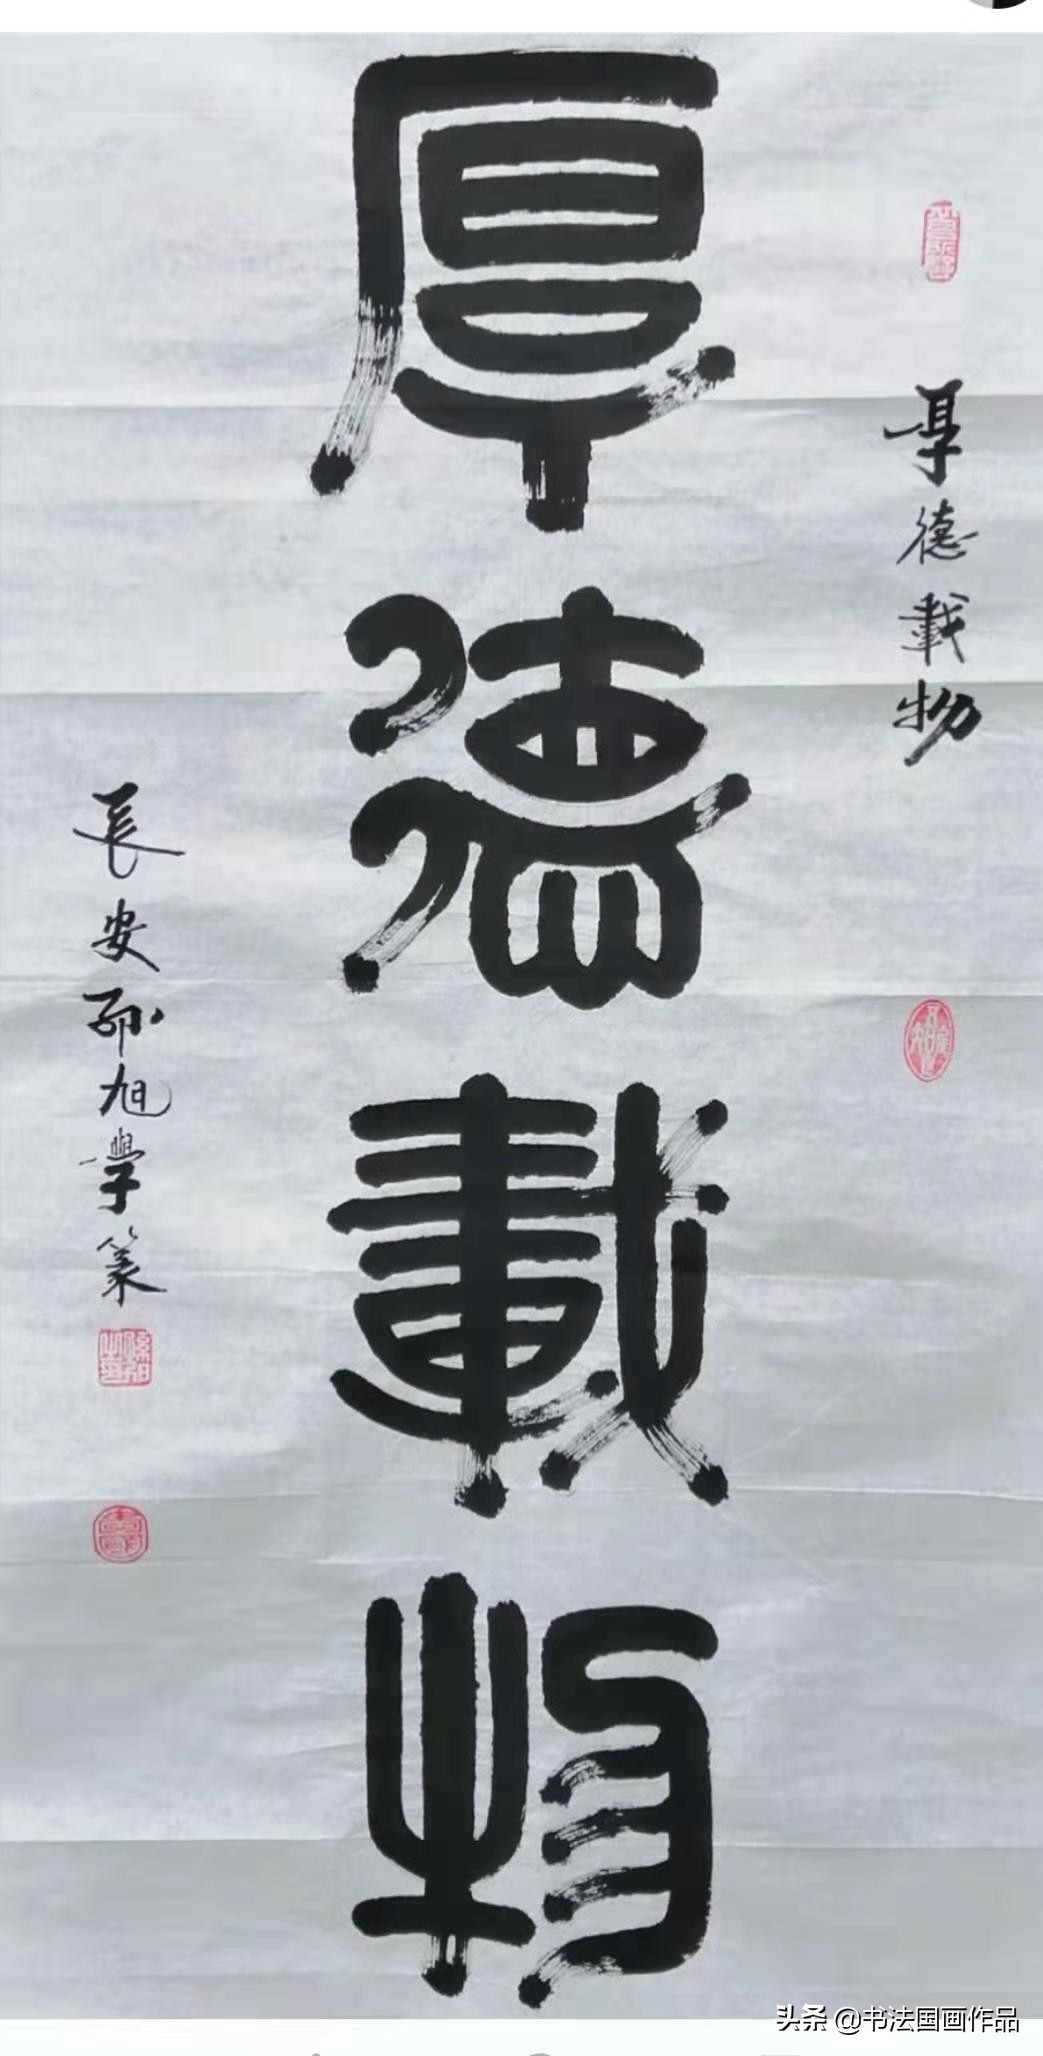 厚德載物
厚德載物
長安孙旭學篆
头条 @书法国画作品